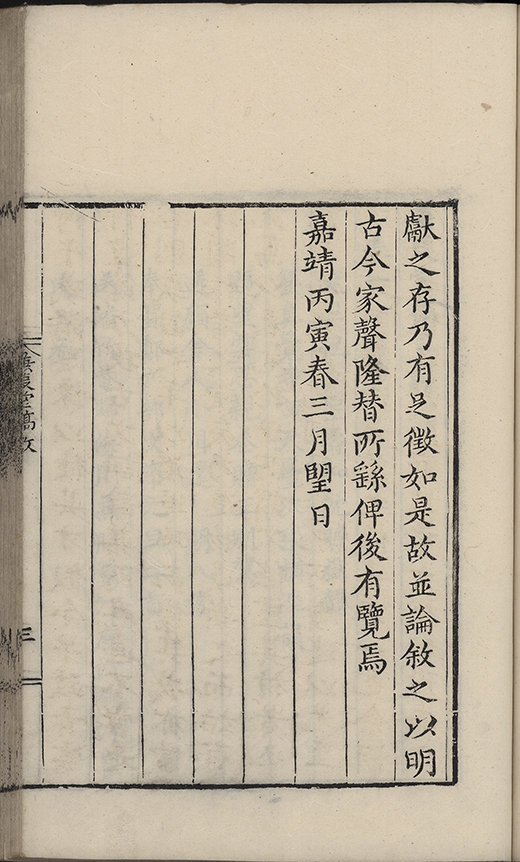 獻之存乃有足徵如是故並論敘之以明
古今家聲隆替所繇俾後有覽焉
嘉靖丙寅春三月朢日
三